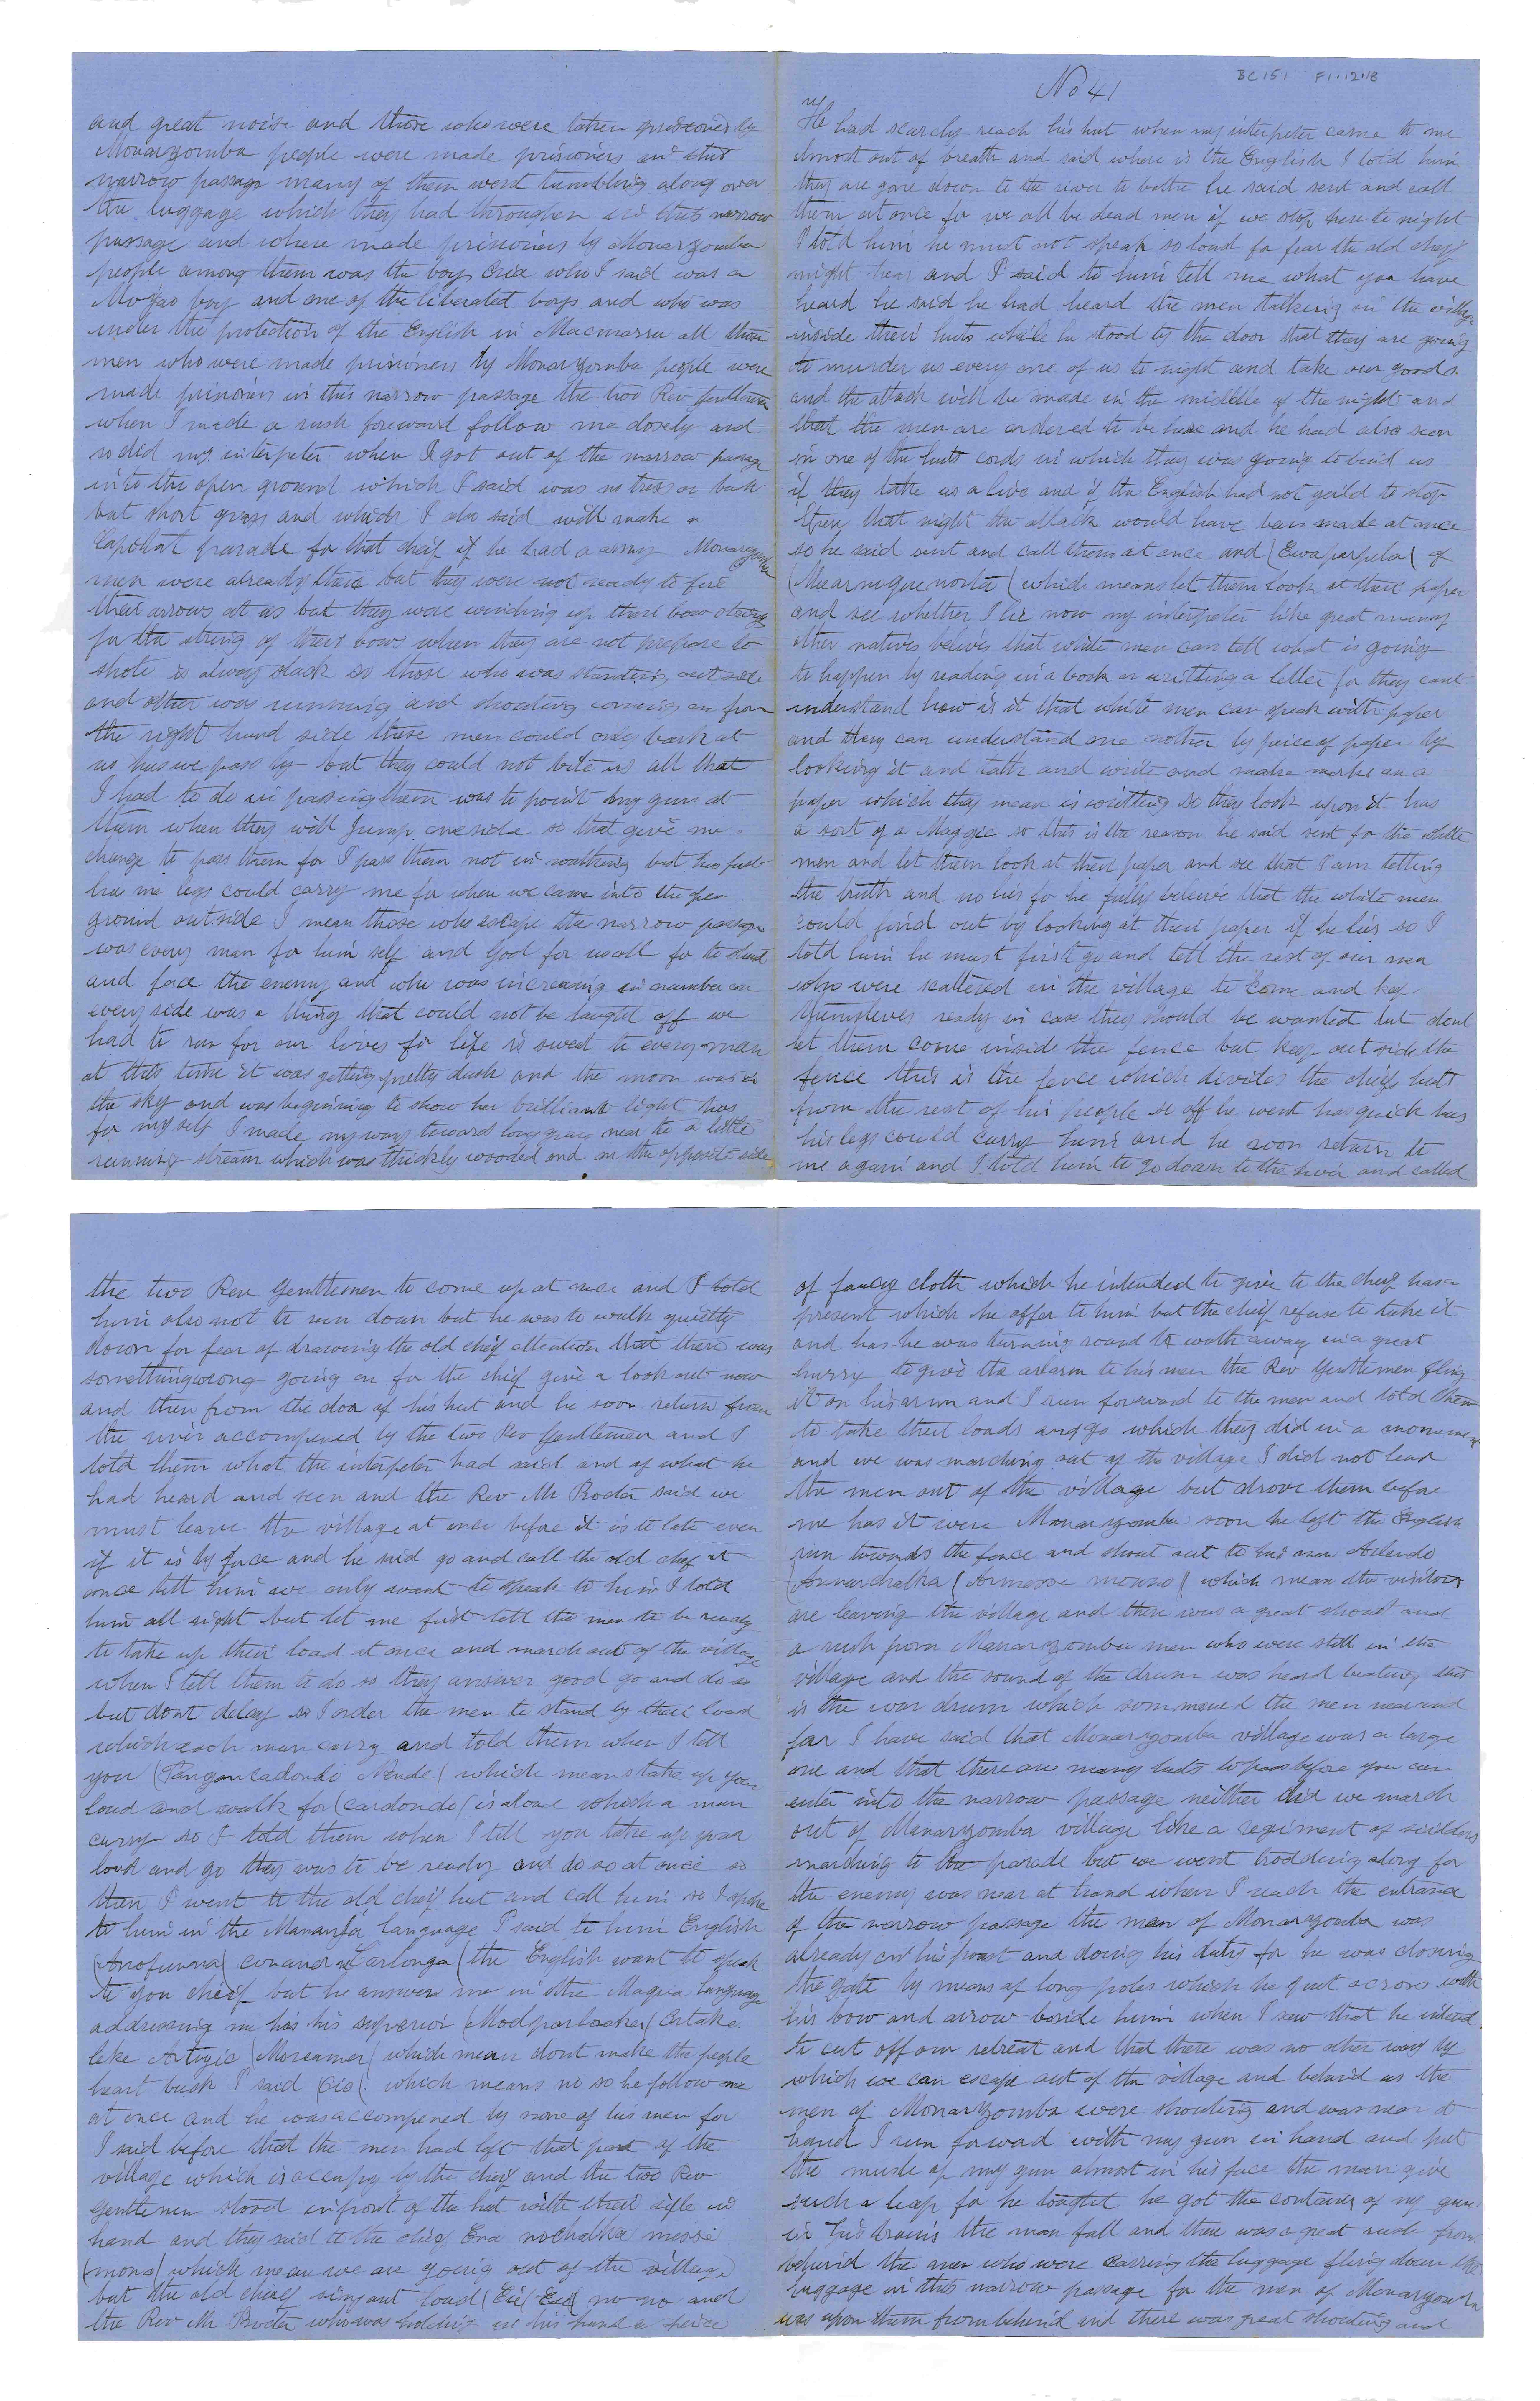 BC151 F1.12.18
No 41
He had scarcly reach his hut when my interpeter came to me
almost out of breath and said where is the English I told him
they are gone down to the river to bathe he said sent and call
them at once for we all be dead men if we stop here to night
I told him he must not speak so loud for fear the old cheif
might hear and I said to him tell me what you have
heard he said he had heard the men talking in the village
inside their huts while he stood by the door that they are going
to murder us every one of us to night and take our goods
and the attack will be made in the middle of the night and
that the men are ordered to be here and he had also seen
in one of the huts cords in which they was going to bind us
if they take us alive and if the English had not yeild to stop
that night the attack would have been made at once
so he said sent and call them at once and (Ewaparpela( of
(Mearnoguenorta( which means let them look at their paper
and see whether I lie now my interpeter like great many
other natives beleives that white men can tell what is going
to happen by reading in a book or writting a letter for they cant
understand how is it that white men can speak with paper
and they can understand one nother by peice of paper by
looking it and talk and write and make marke on a
paper which they mean is writting so they look upon it has
a sort of a Maggic so this is the reason he said sent for the white
men and let them look at their paper and see that I am telling
the truth and no lies for he fully beleive that the white men
could find out by looking at their paper if he lies so I
told him he must first go and tell the rest of our men
who were scattered in the village to come and kep
themselves ready in case they should be wanted but dont
let them come inside the fence but keep out side the
fence this is the fence which divides the cheif huts
from the rest of his people so off he went has quick has
his legs could carry him and he soon return to
me again and I told him to go down to the river and called
the two Rev Gentlemen to come up at once and I told
him also not to run down but he was to walk quietly
down for fear of drawing the old cheif attention that there was
something wrong going on for the cheif give a look out now
and then from the doa of his hut and he soon return from
the river accompened by the two Rev Gentlemen and I
told them what the interpeter had said and of what he
had heard and seen and the Rev Mr Procter said we
must leave the village at once before it is to late even
if it is by force and he said go and call the old cheif at
once tell him we only want to speak to him I told
him all right but let me first tell the men to be ready
to take up their load at once and march out of the village
when I tell them to do so they answer good go and do so
but dont delay so I order the men to stand by their load
which each man carry and told them when I tell
you (Pangancadondo Nende( which means take up your
load and walk for (cardondo( is a load which a man
carry so I told them when I tell you take up your
load and go they was to be ready and do so at once so
then I went to the old cheif hut and call him so I spoke
to him in the Mananja language I said to him English
(Anofunna( cunanena Carlonga( the English want to speak
to you cheif but he answers me in the Magua language
addressing me has his superior (Modparlaaka( Artake
like Artogie (Moreamer( which mean dont make the people
heart bush I said (Cio( which means no so he follow me
at once and he was accompened by none of his men for
I said before that the men had left that part of the
village which is occupy by the cheif and the two Rev
Gentlemen stood infront of the hut with their rifle in
hand and they said to the cheif Ena nochalka messie
(mono( which mean we are going out of the village
but the old cheif sing out loud (Eai( Eai( no no and
the Rev Mr Procter who was holding in his hand a peice
of fancy cloth which he intended to give to the cheif has a
present which he offer to him but the cheif refuse to take it
and has he was turning round to walk away in a great
hurry to give the alarm to his men the Rev Gentlemen fling
it on his arm and I run forward to the men and told them
to take their loads and go which they did in a moment
and we was marching out of the village I did not lead
the men out of the village but drove them before
me has it were Monarzomba soon he left the English
run towards the fence and shout out to his men Arlendo
(Annarchalka (Armesse monno( which mean the visitors
are leaving the village and there was a great shout and
a rush from Manarzomba men who were still in the
village and the sound of the drum was heard beating this
is the war drum which sommoned the men near and
far I have said that Monarzomba village was a large
one and that there are many huts to pass before you can
enter into the narrow passage neither did we march
out of Manarzomba village like a regiment of soilders
marching to the parade but we went trodding along for
the enemy was near at hand when I reach the entrance
of the narrow passage the man of Monarzomba was
already on his post and doing his duty for he was closing
the gate by means of long poles which he put across with
his bow and arrow beside him when I saw that he intend
to cut off our retreat and that there was no other way by
which we can escape out of the village and behind us the
men of Monarzomba were shouting and was near at
hand I run forwad with my gun in hand and put
the musle of my gun almost in his face the man give
such a leap for he tought he got the contains of my gun
in his brains the man fall and there was a great rush from
behind the men who were carring the luggage fling down the
luggage in this narrow passage for the men of Monarzomba
was upon them from behind and there was great shouting and
and great noise and those who were taken prisoners by
Monarzomba people were made prisioners in this
narrow passage many of them went tumbling along over
the luggage which they had throughen in this narrow
passage and where made prisioners by Monarzomba
people among them was the boy who I said was a
Moyao boy and one of the liberated boys and who was
under the protection of the English in Macmarra all those
men who were made prisioners by Monarzomba people were
made prisioners in this narrow passage the two Rev Gentlemen
when I made a rush foreward follow me closely and
so did my interpeter when I got out of the narrow passage
into the open ground which I said was no tress or bush
but short grass and which I also said will make a
Capotal parade for that cheif if he had a army Monarzomba
men were already there but they were not ready to fire
their arrows at us but they were winding up their bow strings
for the string of their bows when they are not prepare to
shote is alway slack so those who was standing out side
and other was running and shouting coming on from
the right hand side these men could only bark at
us has we pass by but they could not bite us all that
I had to do in passing them was to point my gun at
them when they will Jump oneside so that give me
change to pass them for I pass them not in walking but has fast
has me legs could carry me for when we came into the open
ground outside I mean those who escape the narrow passage
was every man for him self and God for us all for to stand
and face the enemy and who was increasing in number on
every side was a thing that could not be taught off we
had to run for our lives for life is sweet to every man
at this time it was getting pretty dusk and the moon was in
the sky and was beginning to show her brilliant light has
for myself I made my ways toward long grass near to a little
running stream which was thickly wooded and on the opposite side